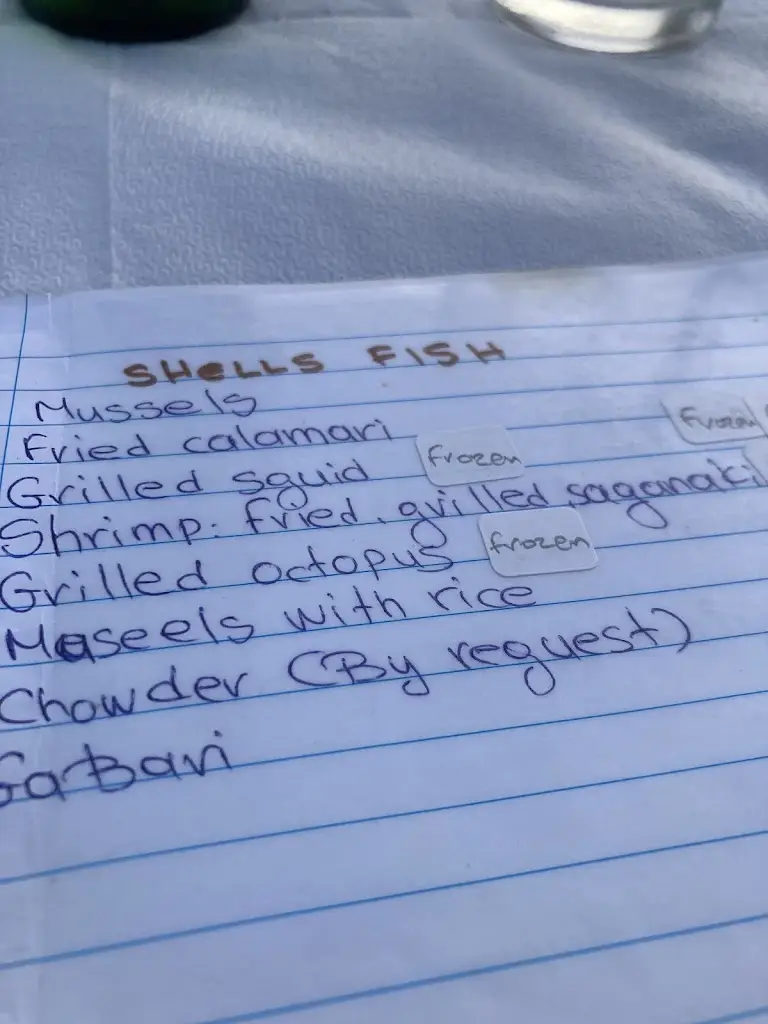 SHELLS FISH
Mussels
Fried calamari
frozen
Grilled squid
frozen
Shrimp: fried, grilled saganaki
Grilled octopus
frozen
Maseels with rice
Chowder (By request)
GaBari